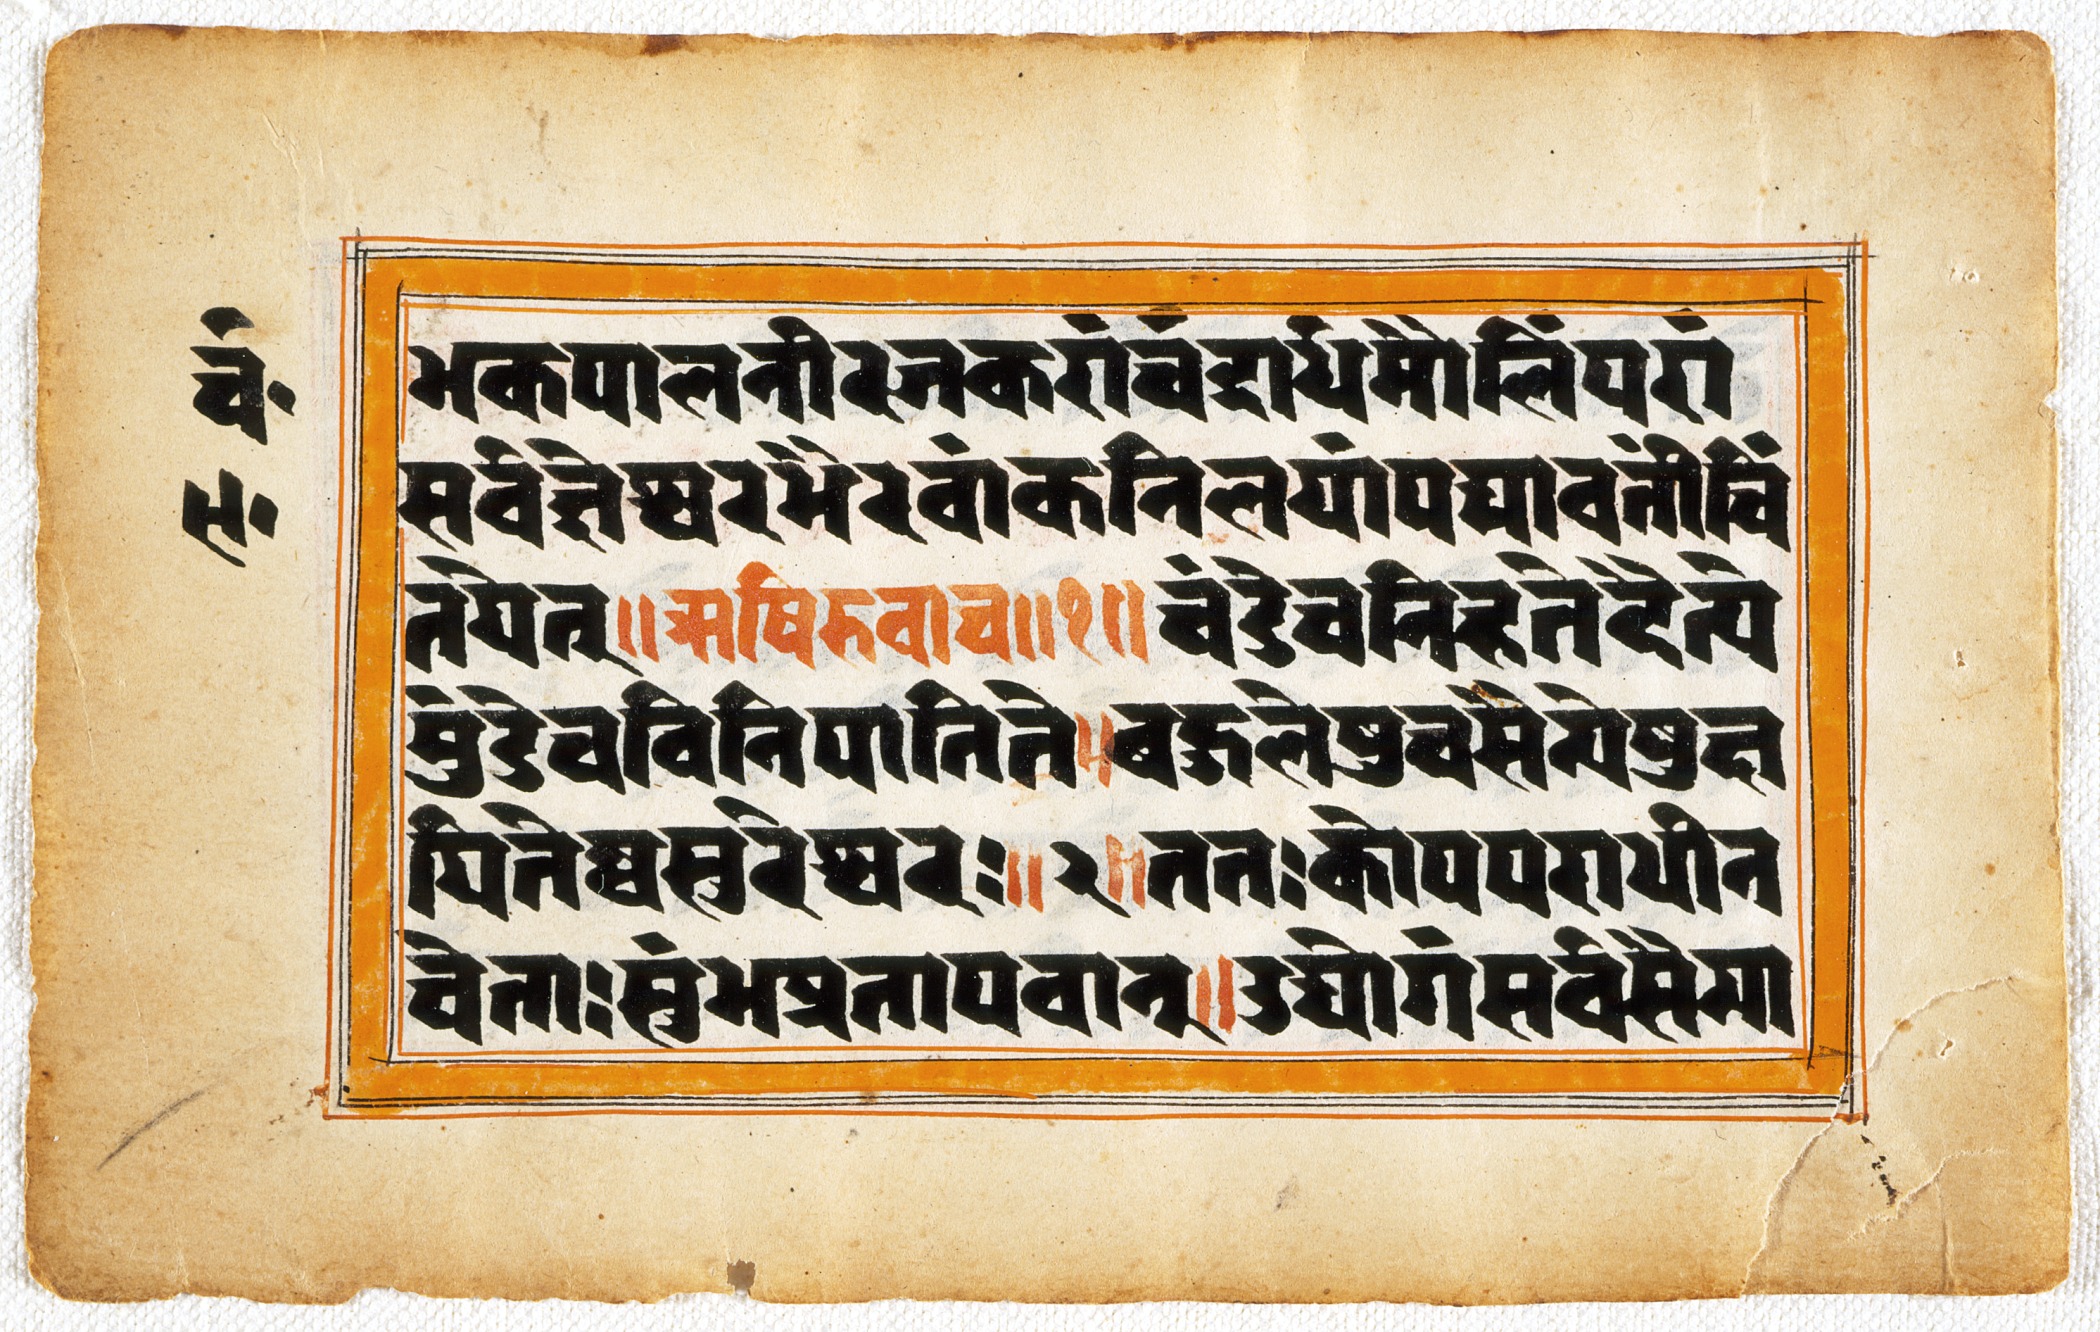 चं॰
स॰
भकपालनीरजकरांचंद्रार्धमौलिंपरां
सर्वज्ञेश्वरभैरवांकनिलयांपद्मावतींचिं
तयेत्॥ऋषिरुवाच॥१॥चंडेचनिहतेदैत्ये
मुंडेचविनिपातिते॥बहुलेषुचसैन्येषुक्ष
यितेष्वसुरेश्वरः॥२॥ततःकोपपराधीन
चेताःसुंभप्रतापवान्॥उद्योगंसर्वसैन्या